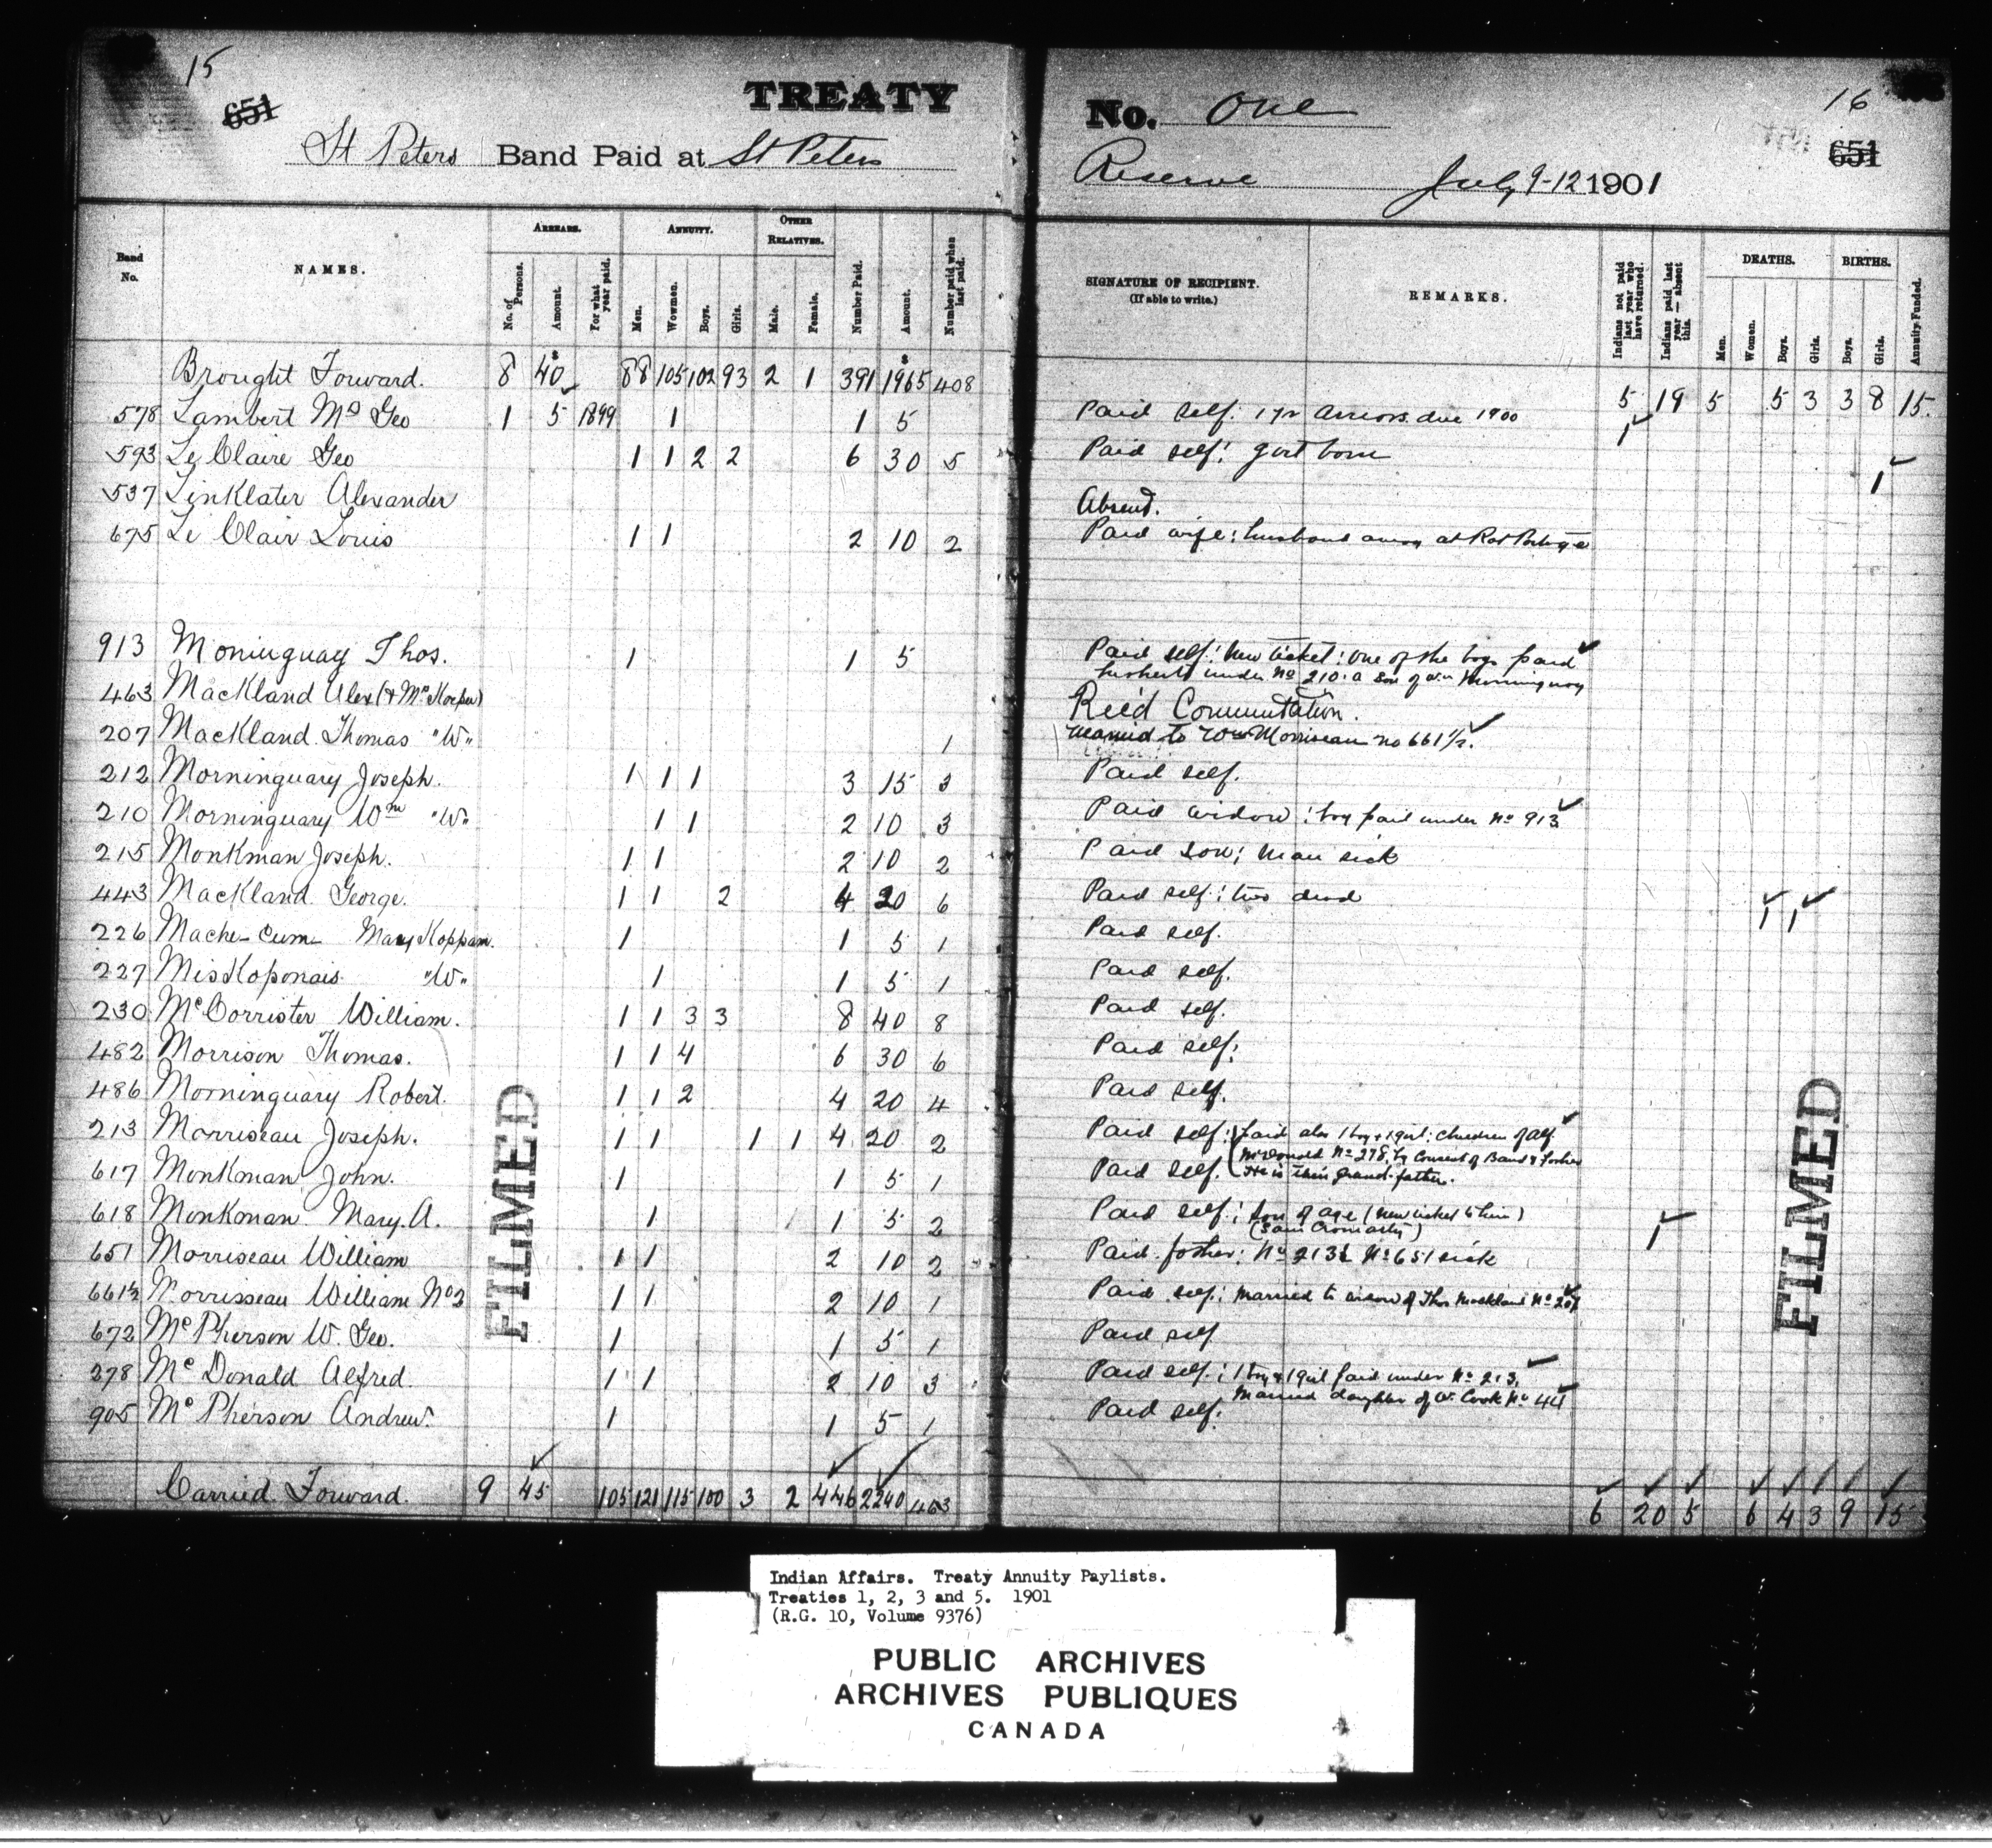 15
651
TREATY
St Peters Band Paid at St Peters
Band No.
NAMES.
ARREARS.
No. of Persons.
Amount.
For what year paid.
ANNUITY.
Men.
Women.
Boys.
Girls.
OTHER RELATIVES.
Male.
Female.
Number Paid.
Amount.
Number paid when last paid.
Brought Forward. 8 40 88 105 102 93 2 1 391 1965 408
578 Lambert Mo Geo 1 5 1899 1 1 5
593 Le Claire Geo 1 1 2 2 6 30 5
537 Linklater Alexander
675 Le Clair Louis 1 1 2 10 2
913 Moninguay Thos. 1 1 5
463 Mackland Alex
207 Mackland Thomas "W" 1
212 Morninguary Joseph. 1 1 1 3 15 3
210 Morninguary Wm "W" 1 1 2 10 3
215 Monkman Joseph. 1 1 2 10 2
443 Mackland George. 1 1 2 4 20 6
226 Mache-Cum Mary Koppam. 1 1 5 1
227 MisKoponais "W" 1 1 5 1
230 McCorrister William. 1 1 3 3 8 40 8
482 Morrison Thomas. 1 1 4 6 30 6
486 Morninguary Robert. 1 1 2 4 20 4
213 Morriseau Joseph. 1 1 1 1 4 20 2
617 Monkman John. 1 1 5 1
618 Monkman Mary. A. 1 1 5 2
651 Morriseau William 1 1 2 10 2
661½ Morrisseau William No2 1 1 2 10 1
672 McPherson W. Geo. 1 1 5 1
278 McDonald Alfred. 1 1 2 10 3
905 McPherson Andrew. 1 1 5 1
Carried Forward. 9 45 105 121 115 100 3 2 446 2240 463
FILMED
16
651
No. One
Reserve July 9-12 1901
SIGNATURE OF RECIPIENT.
(If able to write.)
REMARKS.
Indians not paid last year who have returned.
Indians paid last year — absent this.
DEATHS.
Men.
Women.
Boys.
Girls.
BIRTHS.
Boys.
Girls.
Annuity Funded.
5 19 5 5 3 3 8 15.
Paid self. 1 yr arrears due 1900 1
Paid self: girl born 1
Absent.
Paid wife: husband away at Rat Portage
Paid self: New ticket: one of the boys paid
under No 210: a son of Wm Morninguay
Rec'd Commutation.
Married to Wm Morriseau no 661½.
Paid self.
Paid widow: boy paid under No 913
Paid son; man sick
Paid self: two dead 1 1
Paid self.
Paid self.
Paid self.
Paid self:
Paid self.
Paid self: Paid also 1 boy + 1 girl: children of Alf.
McDonald No 278, by Consent of Band & father
Paid self. He is their grand-father.
Paid self: son of age (new ticket to him) 1
Paid father: No 213 No 651 sick
Paid self: Married to widow of Thos Mackland No 207
Paid self
Paid self: 1 boy & 1 girl paid under No 213.
Married daughter of W. Cook No 44
Paid self.
6 20 5 6 4 3 9 15
FILMED
Indian Affairs. Treaty Annuity Paylists.
Treaties 1, 2, 3 and 5. 1901
(R.G. 10, Volume 9376)
PUBLIC ARCHIVES
ARCHIVES PUBLIQUES
CANADA